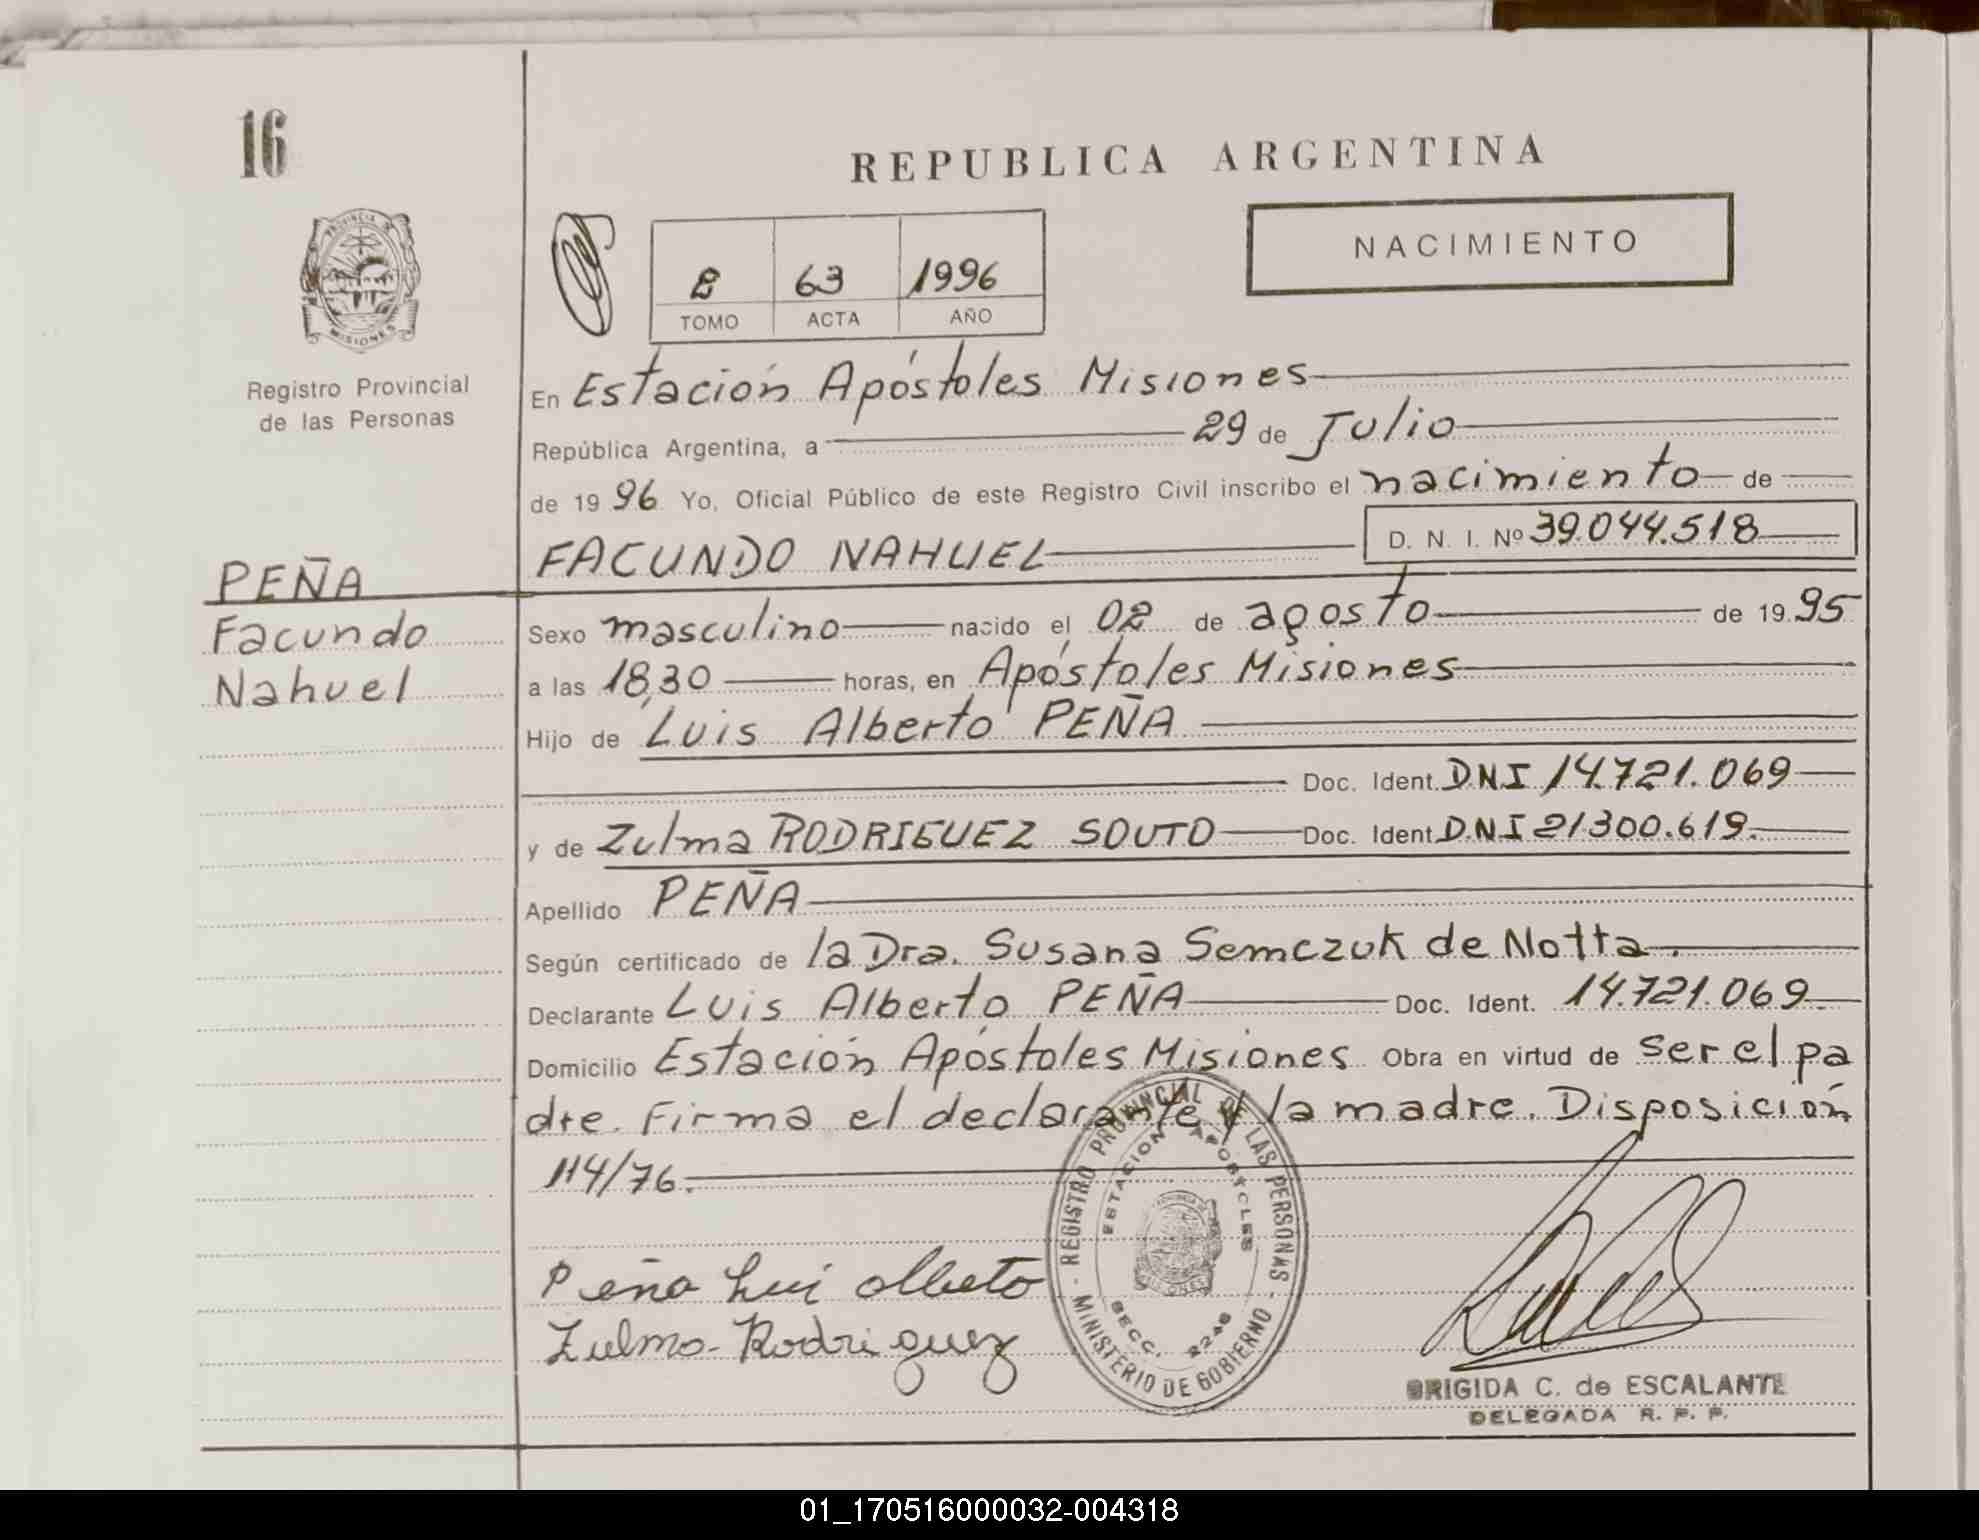 16
REPUBLICA ARGENTINA
PROVINCIA DE
MISIONES
Registro Provincial
de las Personas
63 1996
TOMO ACTA AÑO
NACIMIENTO
En Estación Apóstoles Misiones
República Argentina, a 29 de Julio
de 1996 Yo, Oficial Público de este Registro Civil inscribo el nacimiento de
FACUNDO NAHUEL D. N. I. Nº 39.044.518
PEÑA
Facundo
Nahuel
Sexo masculino nacido el 02 de agosto de 1995
a las 18,30 horas, en Apóstoles Misiones
Hijo de Luis Alberto PEÑA
Doc. Ident. DNI 14.721.069
y de Zulma RODRIGUEZ SOUTO Doc. Ident DNI 21.300.619.
Apellido PEÑA
Según certificado de la Dra. Susana Semczuk de Notta.
Declarante Luis Alberto PEÑA Doc. Ident. 14.721.069
Domicilio Estación Apóstoles Misiones Obra en virtud de ser el pa
dre. Firma el declarante y la madre. Disposición
114/76.
Peña Lui Alberto
Zulma Rodriguez
REGISTRO PROVINCIAL DE LAS PERSONAS
MINISTERIO DE GOBIERNO
ESTACION APOSTOLES
SECC. 2246
BRIGIDA C. de ESCALANTE
DELEGADA R. P. P.
01_170516000032-004318